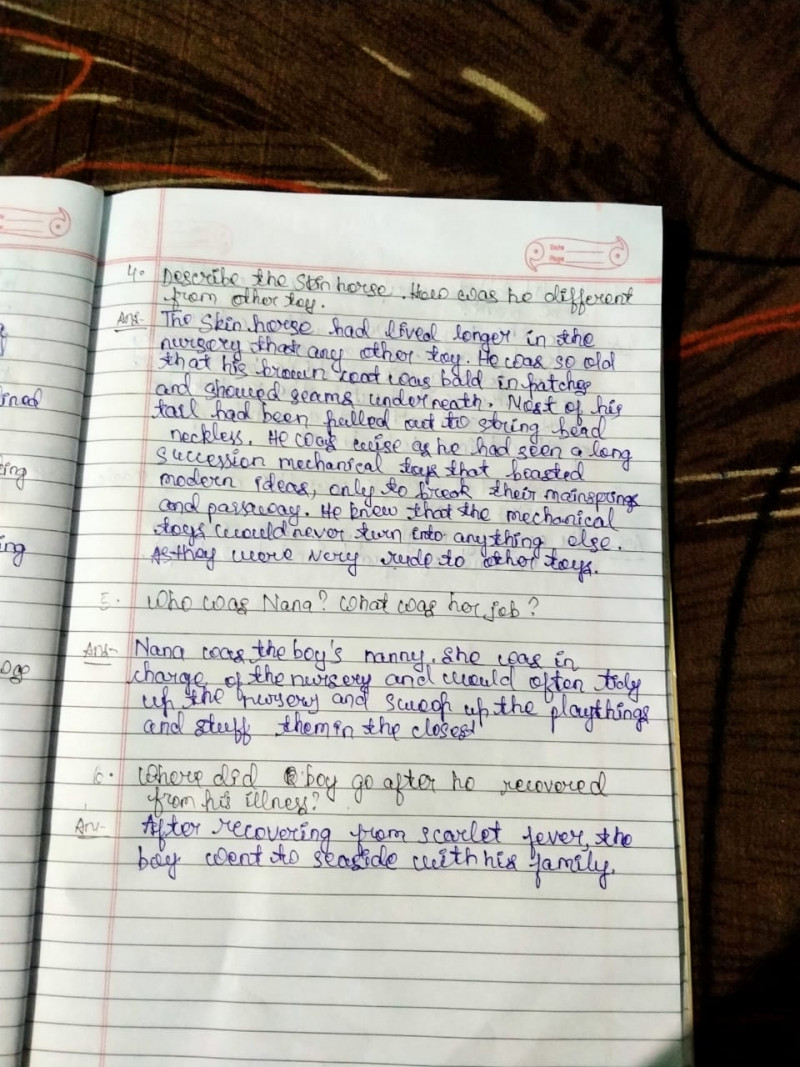 Date
Page
ined
ing
ing
4. Describe the Skin horse. How was he different
from other toy.
Ans- The Skin horse had lived longer in the
nursery that any other toy. He was so old
that his brown coat was bald in patches
and showed seams underneath. Most of his
tail had been pulled out to string bead
neckless. He was wise as he had seen a long
succession mechanical toys that boasted
modern ideas, only to break their mainsprings
and passaway. He knew that the mechanical
toys would never turn into anything else.
As they were very rude to other toys.
5. Who was Nana? What was her job?
Ans- Nana was the boy's nanny. She was in
charge of the nursery and would often tidy
up the nursery and swoop up the playthings
and stuff them in the closest
6. Where did boy go after he recovered
from his illness?
Ans- After recovering from scarlet fever, the
boy went to seaside with his family.